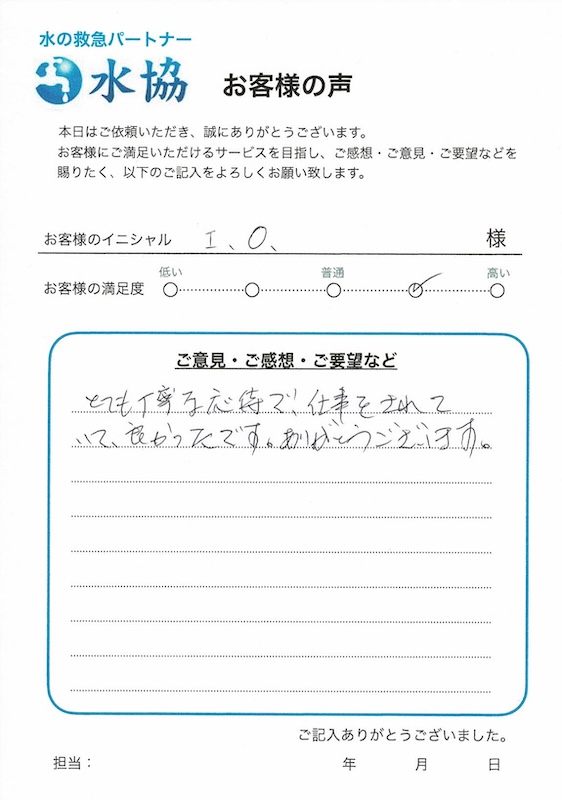 水の救急パートナー
水協 お客様の声
本日はご依頼いただき、誠にありがとうございます。
お客様にご満足いただけるサービスを目指し、ご感想・ご意見・ご要望などを
賜りたく、以下のご記入をよろしくお願い致します。
お客様のイニシャル I、O、 様
低い 普通 高い
お客様の満足度
ご意見・ご感想・ご要望など
とても丁寧な応待で、仕事をされて
いて、良かったです。ありがとうございます。
ご記入ありがとうございました。
担当： 年 月 日